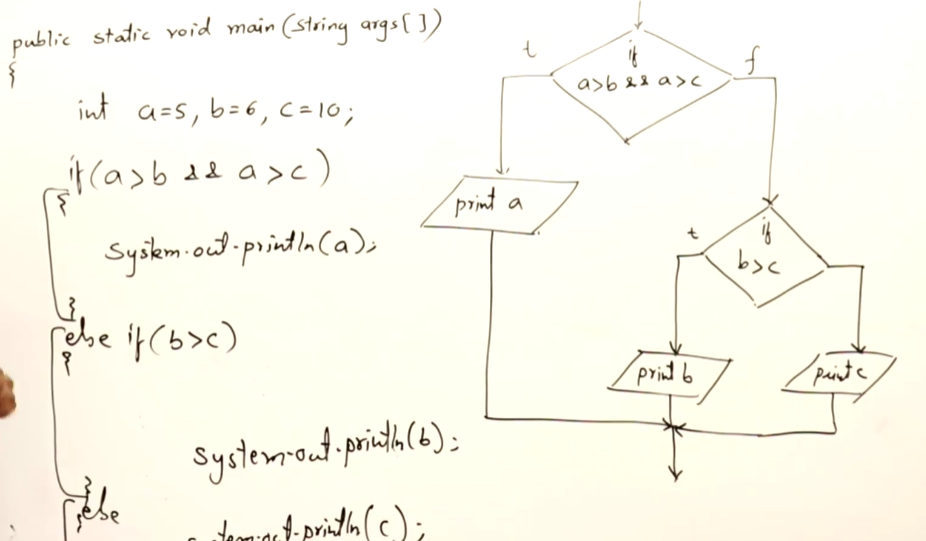 public static void main (String args[])
{
int a=5, b=6, c=10;
if(a>b && a>c)
{
System.out.println(a);
}
else if(b>c)
{
System.out.println(b);
}
else
{
System.out.println(c);
t
if
a>b && a>c
f
print a
t
if
b>c
print b
print c